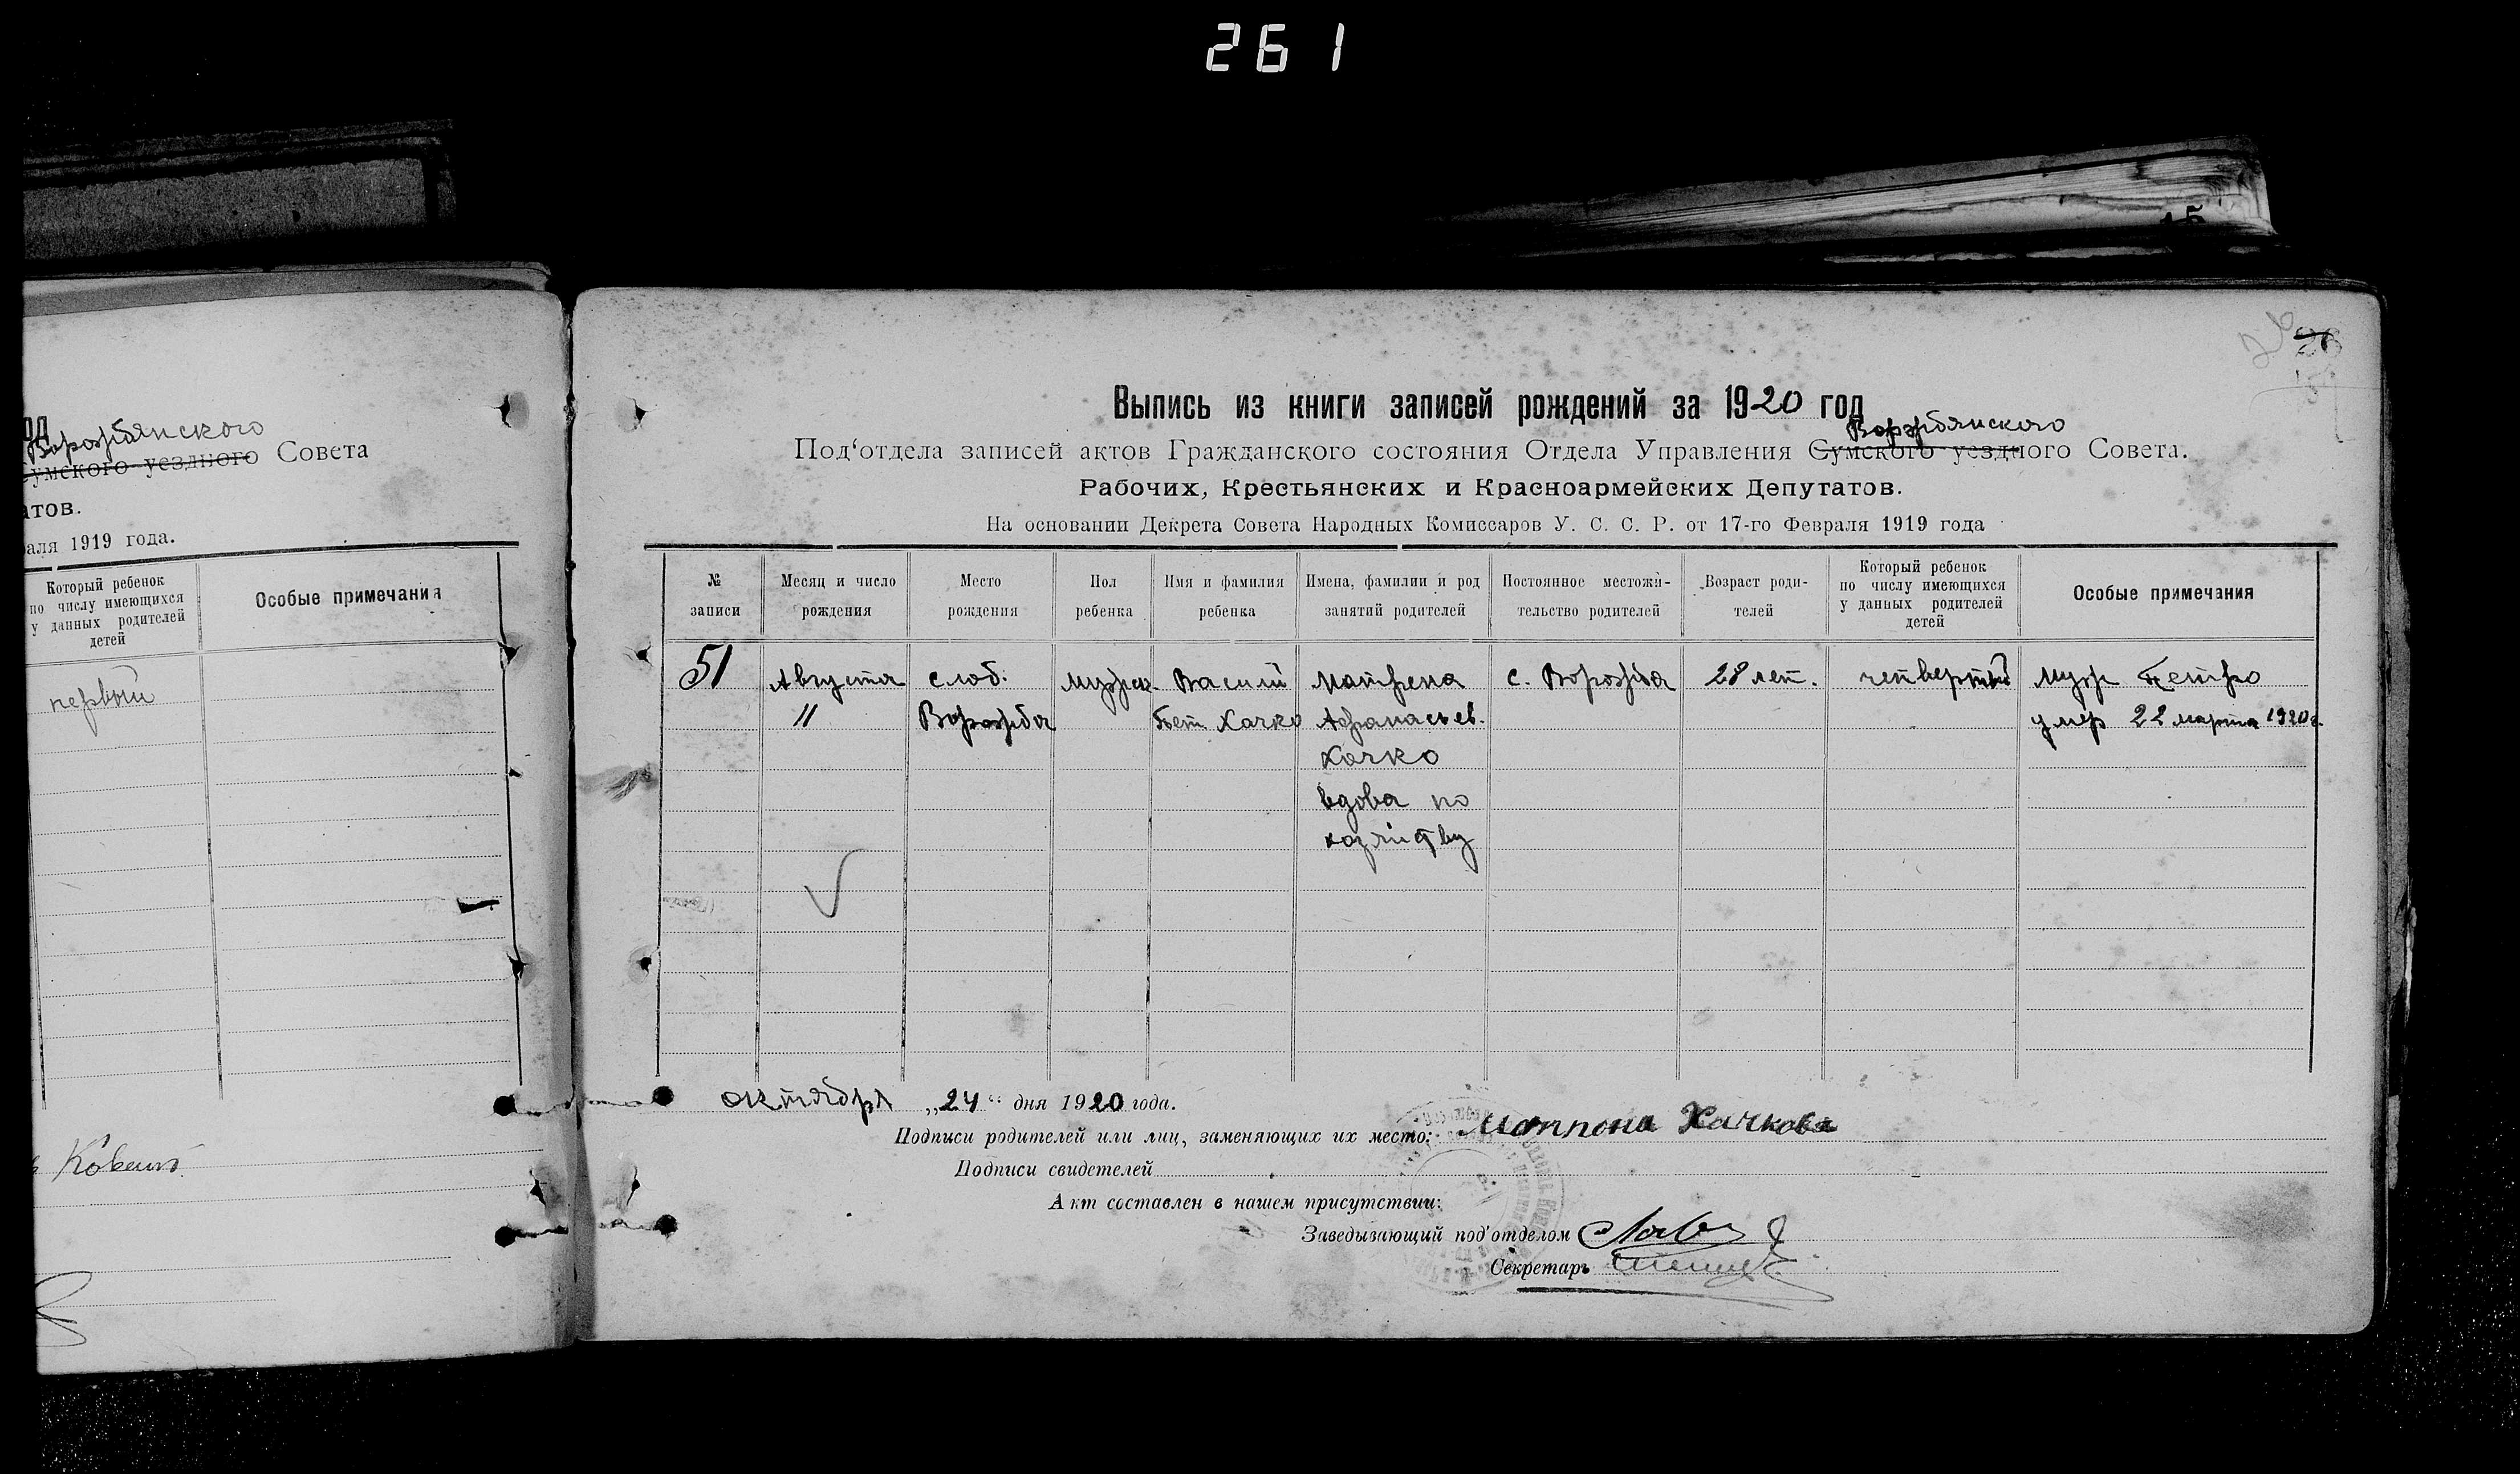 261
15
од
Ворожбянского
Сумского уездного Совета
атов.
аля 1919 года.
Который ребенок
по числу имеющихся
у данных родителей
детей
Особые примечания
первый
26
Выпись из книги записей рождений за 1920 год
Ворожбянского
Под‘отдела записей актов Гражданского состояния Отдела Управления Сумского уездного Совета.
Рабочих, Крестьянских и Красноармейских Депутатов.
На основании Декрета Совета Народных Комиссаров У. С. С. Р. от 17-го Февраля 1919 года
№
записи
Месяц и число
рождения
Место
рождения
Пол
ребенка
Имя и фамилия
ребенка
Имена, фамилии и род
занятий родителей
Постоянное местожи-
тельство родителей
Возраст роди-
телей
Который ребенок
по числу имеющихся
у данных родителей
детей
Особые примечания
51
Августа
11
слоб:
Ворожба
мужск.
Василий
Хачко
Матрена
Афанасьев.
Хачко
вдова по
с. Ворожба
28 лет.
четвертый
муж Петро
умер 22 марта 1920 г.
октября „24“ дня 1920 года.
Подписи родителей или лиц, заменяющих их место: Матпона Хачкова
Подписи свидетелей
Акт составлен в нашем присутствии:
Заведывающий под'отделом
Секретарь